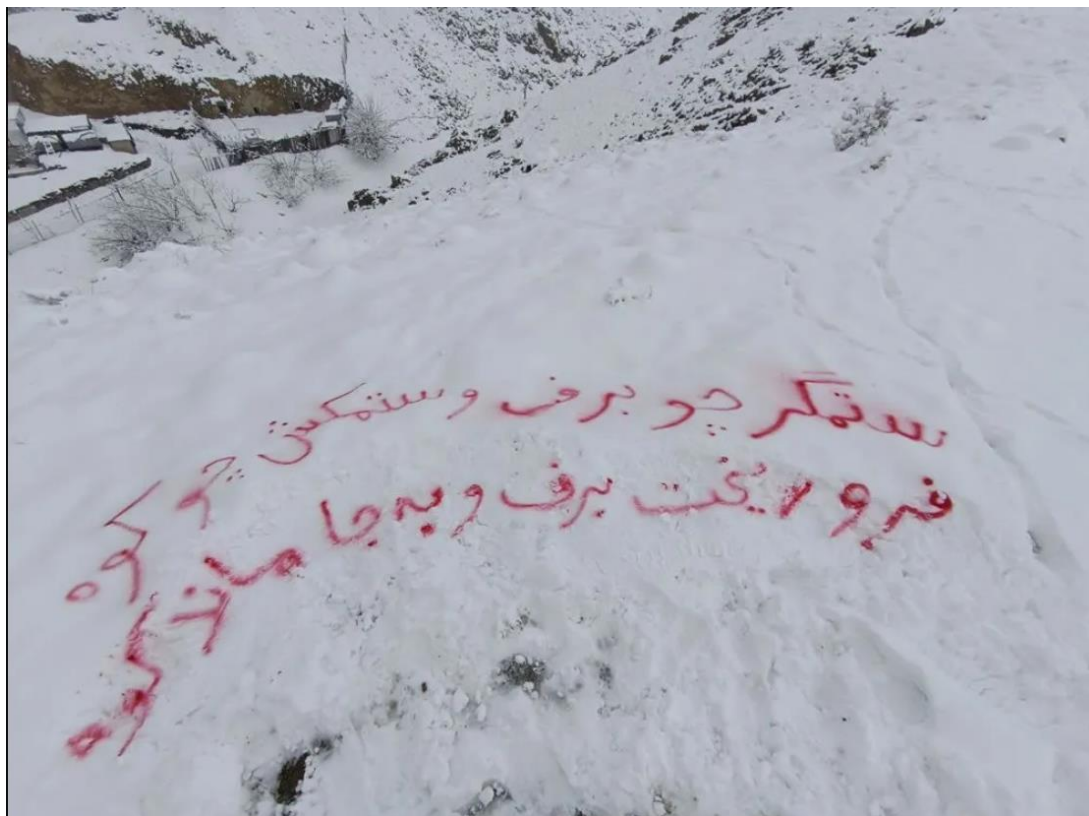 ستمگر چو برف و ستمکش چو کوه
فرو ریخت برف و به جا ماند کوه